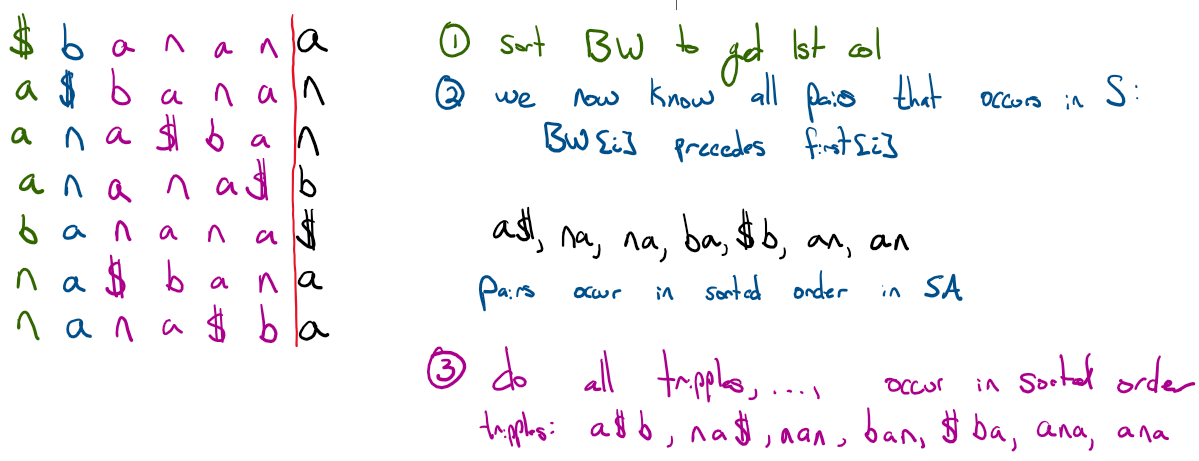 $ b a n a n | a
a $ b a n a | n
a n a $ b a | n
a n a n a $ | b
b a n a n a | $
n a $ b a n | a
n a n a $ b | a
① sort BW to get 1st col
② we now know all pairs that occurs in S:
BW[i] precedes first[i]
a$, na, na, ba, $b, an, an
Pairs occur in sorted order in SA
③ do all tripples, ...., occur in sorted order
tripples: a$b, na$, nan, ban, $ba, ana, ana